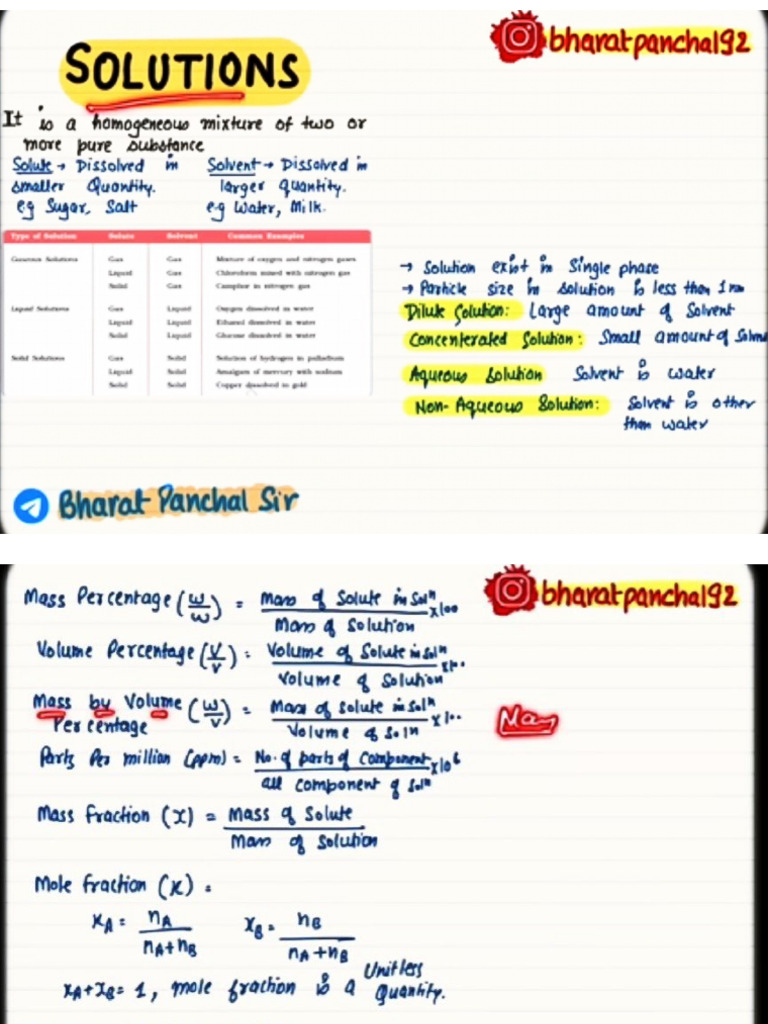 bharatpanchal92
SOLUTIONS
It is a homogeneous mixture of two or
more pure substance
Solute → Dissolved in
smaller Quantity.
eg Sugar, Salt
Solvent → Dissolved in
larger quantity.
e.g Water, Milk.
Type of Solution Solute Solvent Common Examples
Gaseous Solutions Gas Gas Mixture of oxygen and nitrogen gases
Liquid Gas Chloroform mixed with nitrogen gas
Solid Gas Camphor in nitrogen gas
Liquid Solutions Gas Liquid Oxygen dissolved in water
Liquid Liquid Ethanol dissolved in water
Solid Liquid Glucose dissolved in water
Solid Solutions Gas Solid Solution of hydrogen in palladium
Liquid Solid Amalgam of mercury with sodium
Solid Solid Copper dissolved in gold
→ Solution exist in Single phase
→ Particle size in solution is less than 1 nm
Dilute Solution: Large amount of Solvent
Concenterated Solution: Small amount of Solve
Aqueous Solution Solvent is water
Non-Aqueous Solution: Solvent is other
than water
Bharat Panchal Sir
bharatpanchal92
Mass Percentage (w/w) = Mass of Solute in Solⁿ / Mass of Solution x100
Volume Percentage (V/V) = Volume of Solute in Solⁿ / Volume of Solution x100
Mass by Volume Percentage (w/v) = Mass of Solute in Solⁿ / Volume of Solⁿ x100
Mas
Parts Per million (ppm) = No. of parts of Component / all component of Solⁿ x10⁶
Mass fraction (x) = Mass of Solute / Mass of Solution
Mole fraction (x) =
xA = nA / nA+nB xB = nB / nA+nB
xA+xB = 1, mole fraction is a Unitless Quantity.